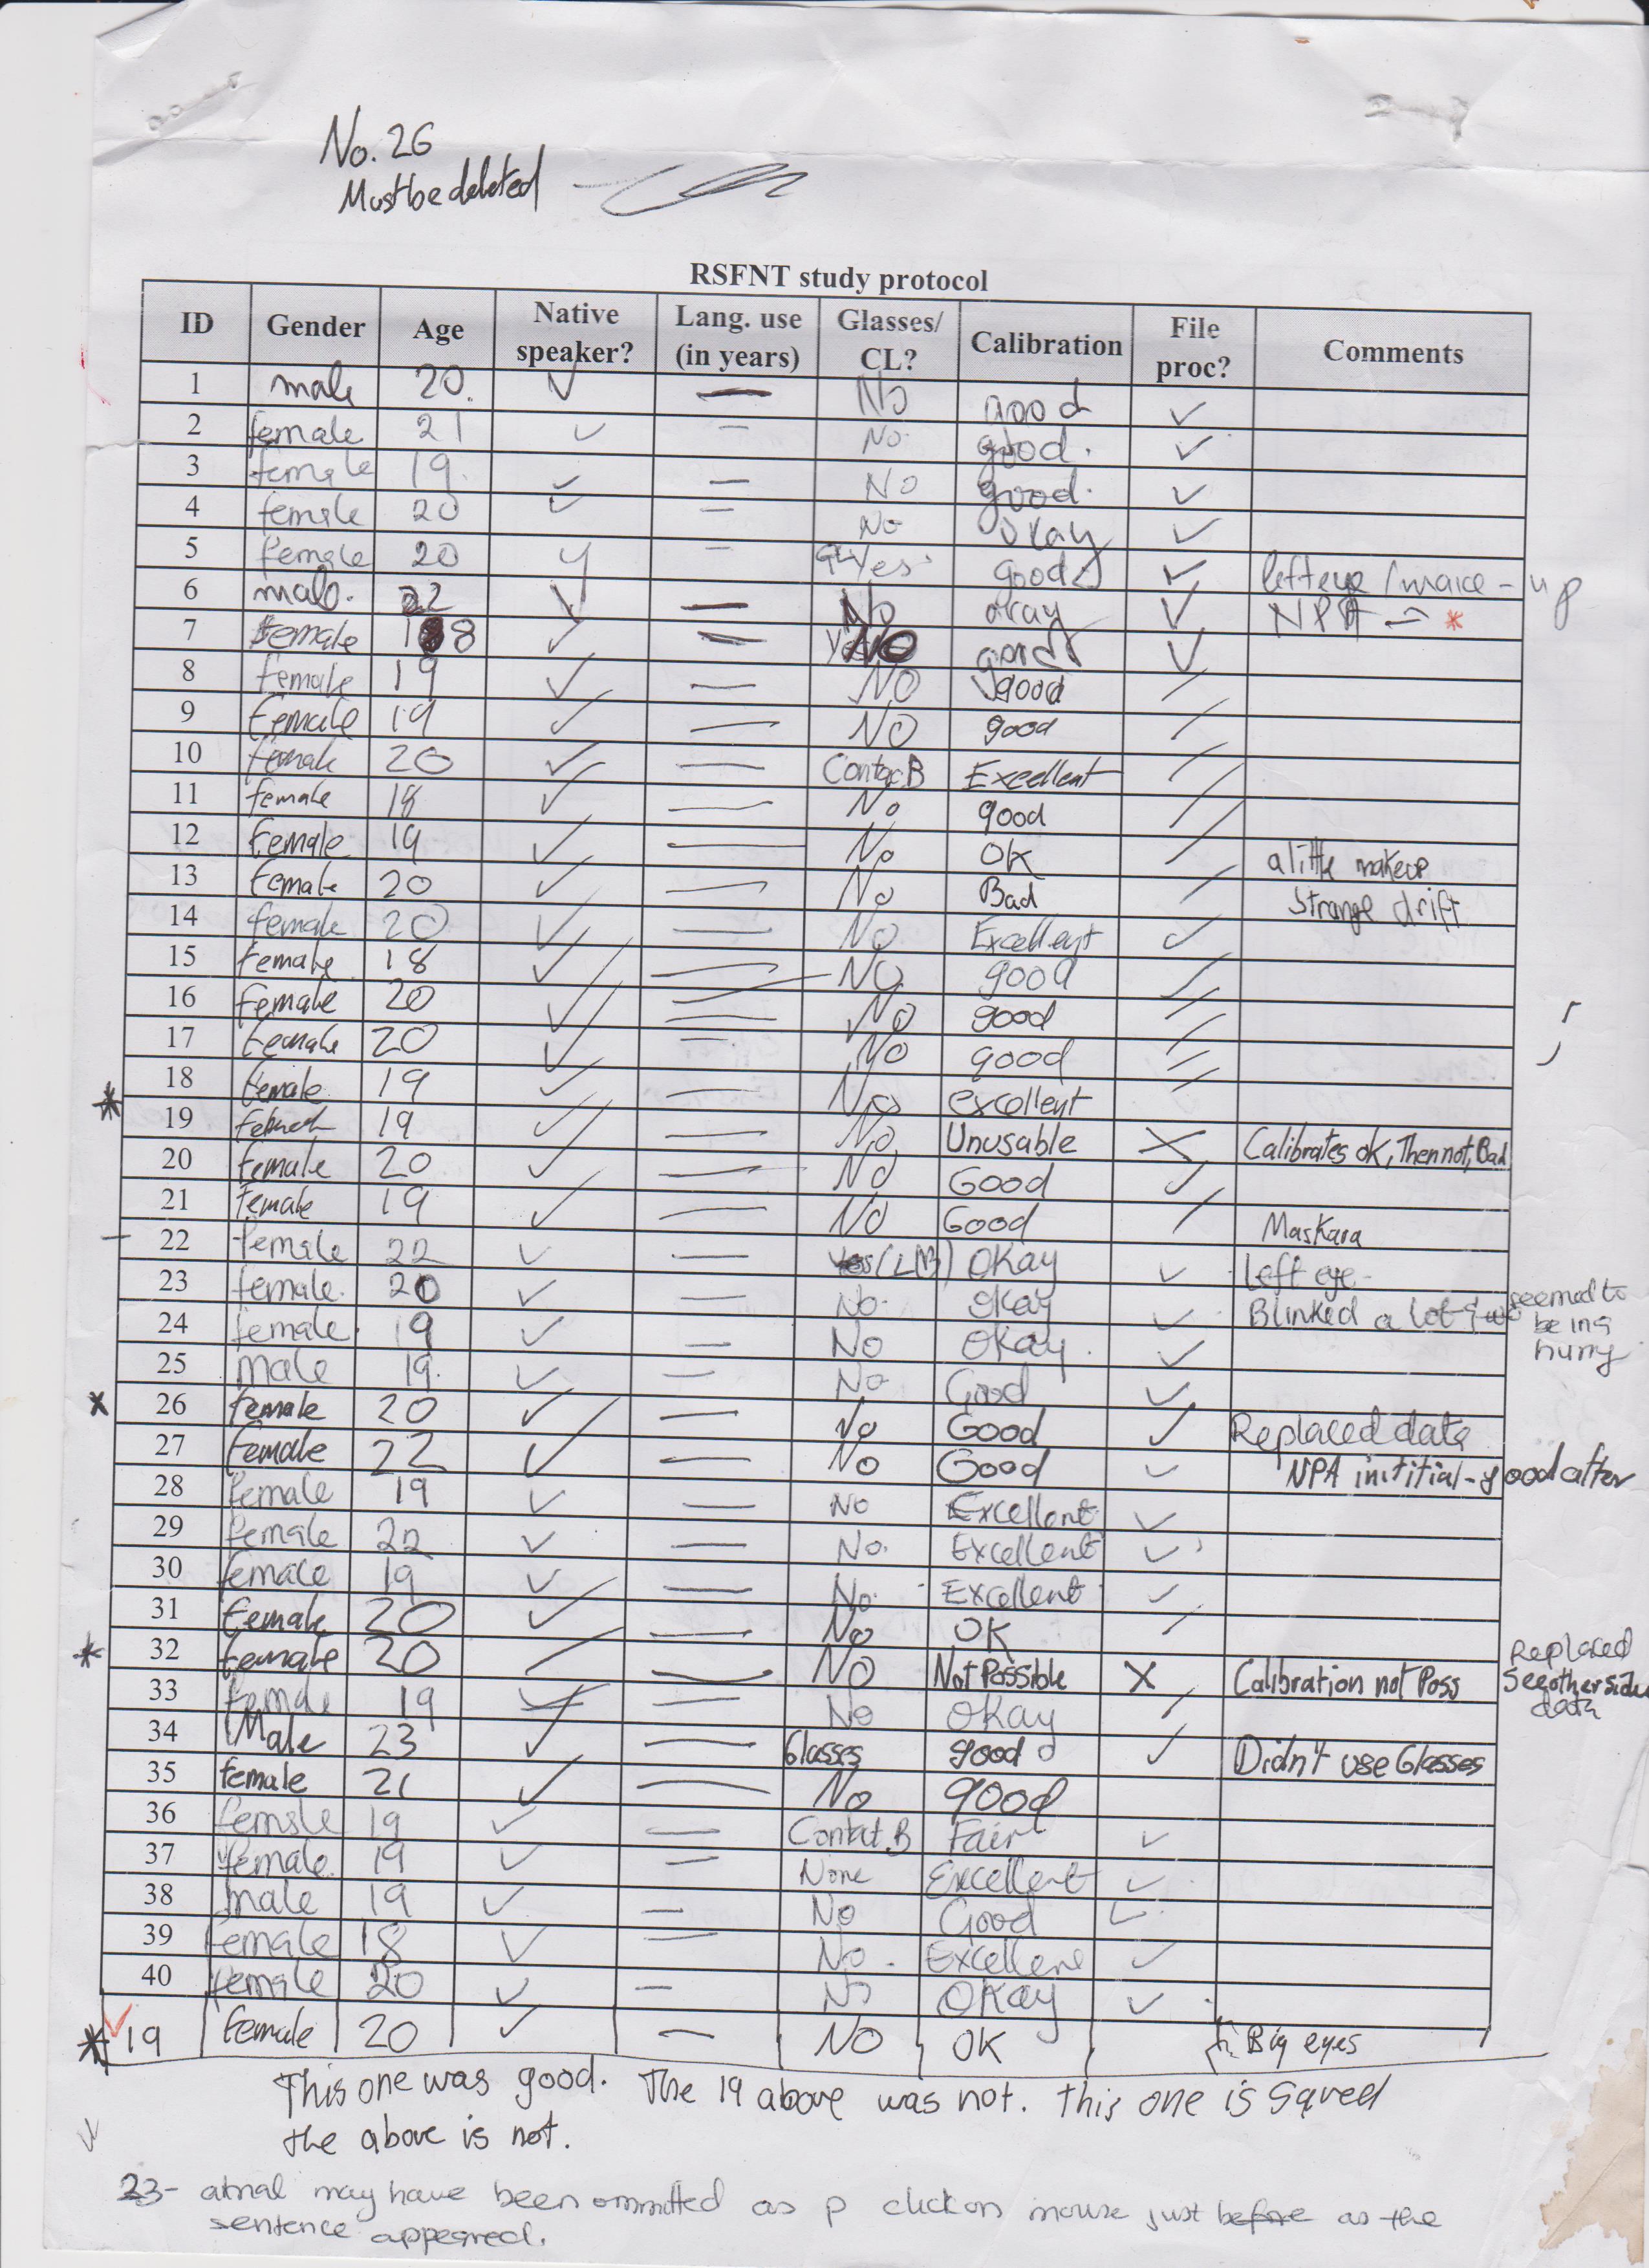 No. 26
Must be deleted
RSFNT study protocol
ID Gender Age Native speaker? Lang. use (in years) Glasses/ CL? Calibration File proc? Comments
1 male 20. ✓ — No good ✓
2 female 21 ✓ — No. good. ✓
3 female 19. ✓ — No good. ✓
4 female 20 ✓ — No okay ✓
5 female 20 ✓ — Yes good ✓ left eye / make-up
6 male. 22 ✓ — No okay ✓ NPA — *
7 female 18 ✓ — No good ✓
8 female 19 ✓ — NO good ✓
9 Female 19 ✓ — NO good ✓
10 female 20 ✓ — Contac B Excellent ✓
11 female 18 ✓ — No good ✓
12 Female 19 ✓ — No OK ✓ a little makeup
13 Female 20 ✓ — No Bad ✓ Strange drift
14 female 20 ✓ — NO Excellent ✓
15 Female 18 ✓ — NO good ✓
16 Female 20 ✓ — No good ✓
17 Female 20 ✓ — No good ✓
* 18 female 19 ✓ — No excellent ✓
19 19 ✓ — No Unusable X Calibrates ok, Then not, Bad
20 female 20 ✓ — NO Good ✓
21 Female 19 ✓ — NO Good ✓ Maskara
22 female 22 ✓ — Yes Okay ✓ left eye-
23 female. 20 ✓ — No. Okay ✓ Blinked a lot & seemed to be in a hurry
24 female. 19 ✓ — No Okay. ✓
25 male 19. ✓ — No Good ✓
x 26 female 20 ✓ — No Good ✓ Replaced data
27 Female 22 ✓ — No Good ✓ NPA initial - good after
28 female 19 ✓ — No Excellent ✓
29 female 22 ✓ — No. Excellent ✓
30 female 19 ✓ — No. Excellent ✓
31 Female 20 ✓ — No OK ✓
* 32 Female 20 ✓ — NO Not Possible X Calibration not Poss Replaced See other side data
33 Female 19 ✓ — No Okay ✓
34 Male 23 ✓ — Glasses good ✓ Didn't use Glasses
35 female 21 ✓ — No good
36 female 19 ✓ — Contact. B Fair ✓
37 female. 19 ✓ — None Excellent ✓
38 male 19 ✓ — No Good ✓
39 female 18 ✓ — No. Excellent ✓
40 female 20 ✓ — No Okay ✓
* ✓ 19 Female 20 ✓ — NO OK Big eyes
This one was good. The 19 above was not. this one is saved
the above is not.
23- may have been ommitted as p click on mouse just before as the
sentence appeared.